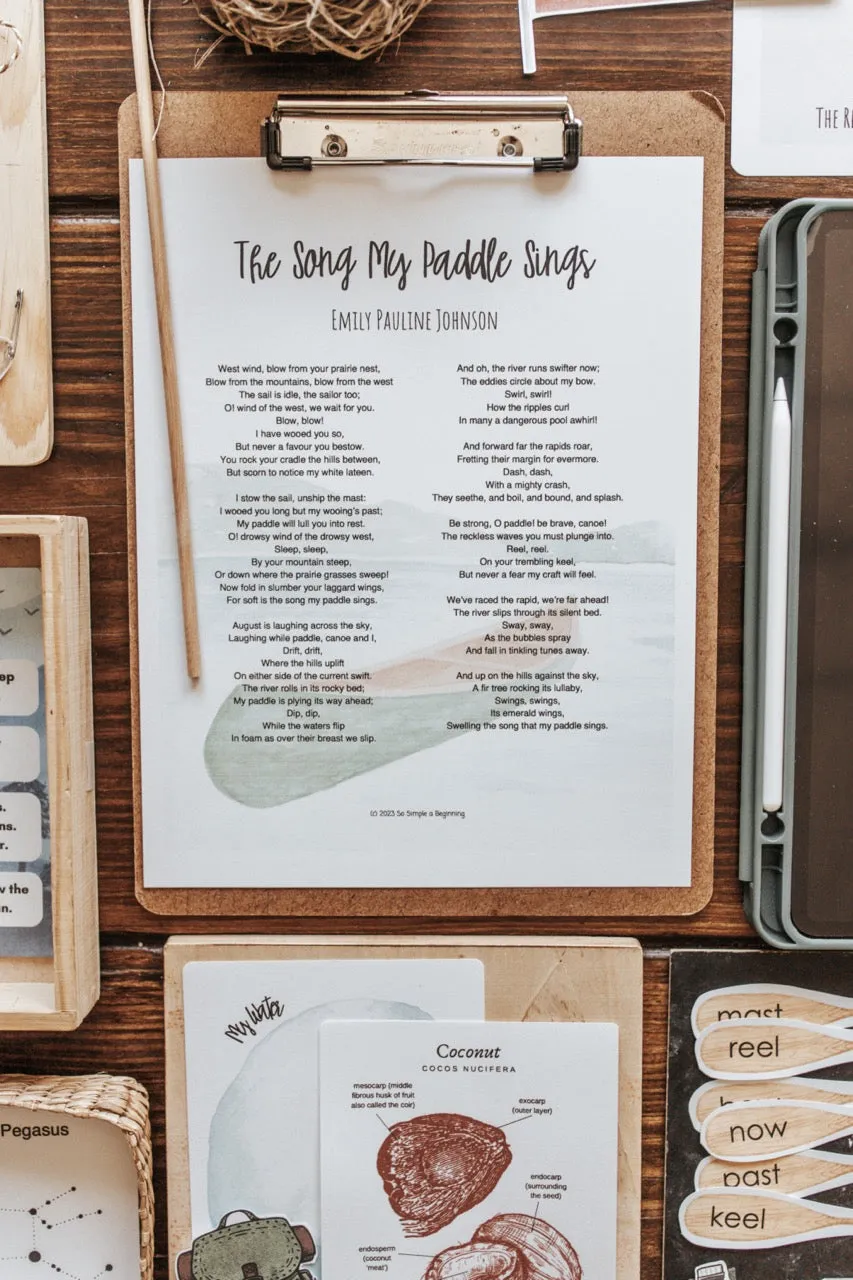 The Song My Paddle Sings
Emily Pauline Johnson
West wind, blow from your prairie nest,
Blow from the mountains, blow from the west
The sail is idle, the sailor too;
O! wind of the west, we wait for you.
Blow, blow!
I have wooed you so,
But never a favour you bestow.
You rock your cradle the hills between,
But scorn to notice my white lateen.
I stow the sail, unship the mast:
I wooed you long but my wooing's past;
My paddle will lull you into rest.
O! drowsy wind of the drowsy west,
Sleep, sleep,
By your mountain steep,
Or down where the prairie grasses sweep!
Now fold in slumber your laggard wings,
For soft is the song my paddle sings.
August is laughing across the sky,
Laughing while paddle, canoe and I,
Drift, drift,
Where the hills uplift
On either side of the current swift.
The river rolls in its rocky bed;
My paddle is plying its way ahead;
Dip, dip,
While the waters flip
In foam as over their breast we slip.
And oh, the river runs swifter now;
The eddies circle about my bow.
Swirl, swirl!
How the ripples curl
In many a dangerous pool awhirl!
And forward far the rapids roar,
Fretting their margin for evermore.
Dash, dash,
With a mighty crash,
They seethe, and boil, and bound, and splash.
Be strong, O paddle! be brave, canoe!
The reckless waves you must plunge into.
Reel, reel.
On your trembling keel,
But never a fear my craft will feel.
We've raced the rapid, we're far ahead!
The river slips through its silent bed.
Sway, sway,
As the bubbles spray
And fall in tinkling tunes away.
And up on the hills against the sky,
A fir tree rocking its lullaby,
Swings, swings,
Its emerald wings,
Swelling the song that my paddle sings.
(c) 2023 So Simple a Beginning
The
My Water
Coconut
Cocos nucifera
mesocarp (middle
fibrous husk of fruit
also called the coir)
exocarp
(outer layer)
endocarp
(surrounding
the seed)
endosperm
(coconut
'meat')
Pegasus
the
mast
reel
now
past
keel